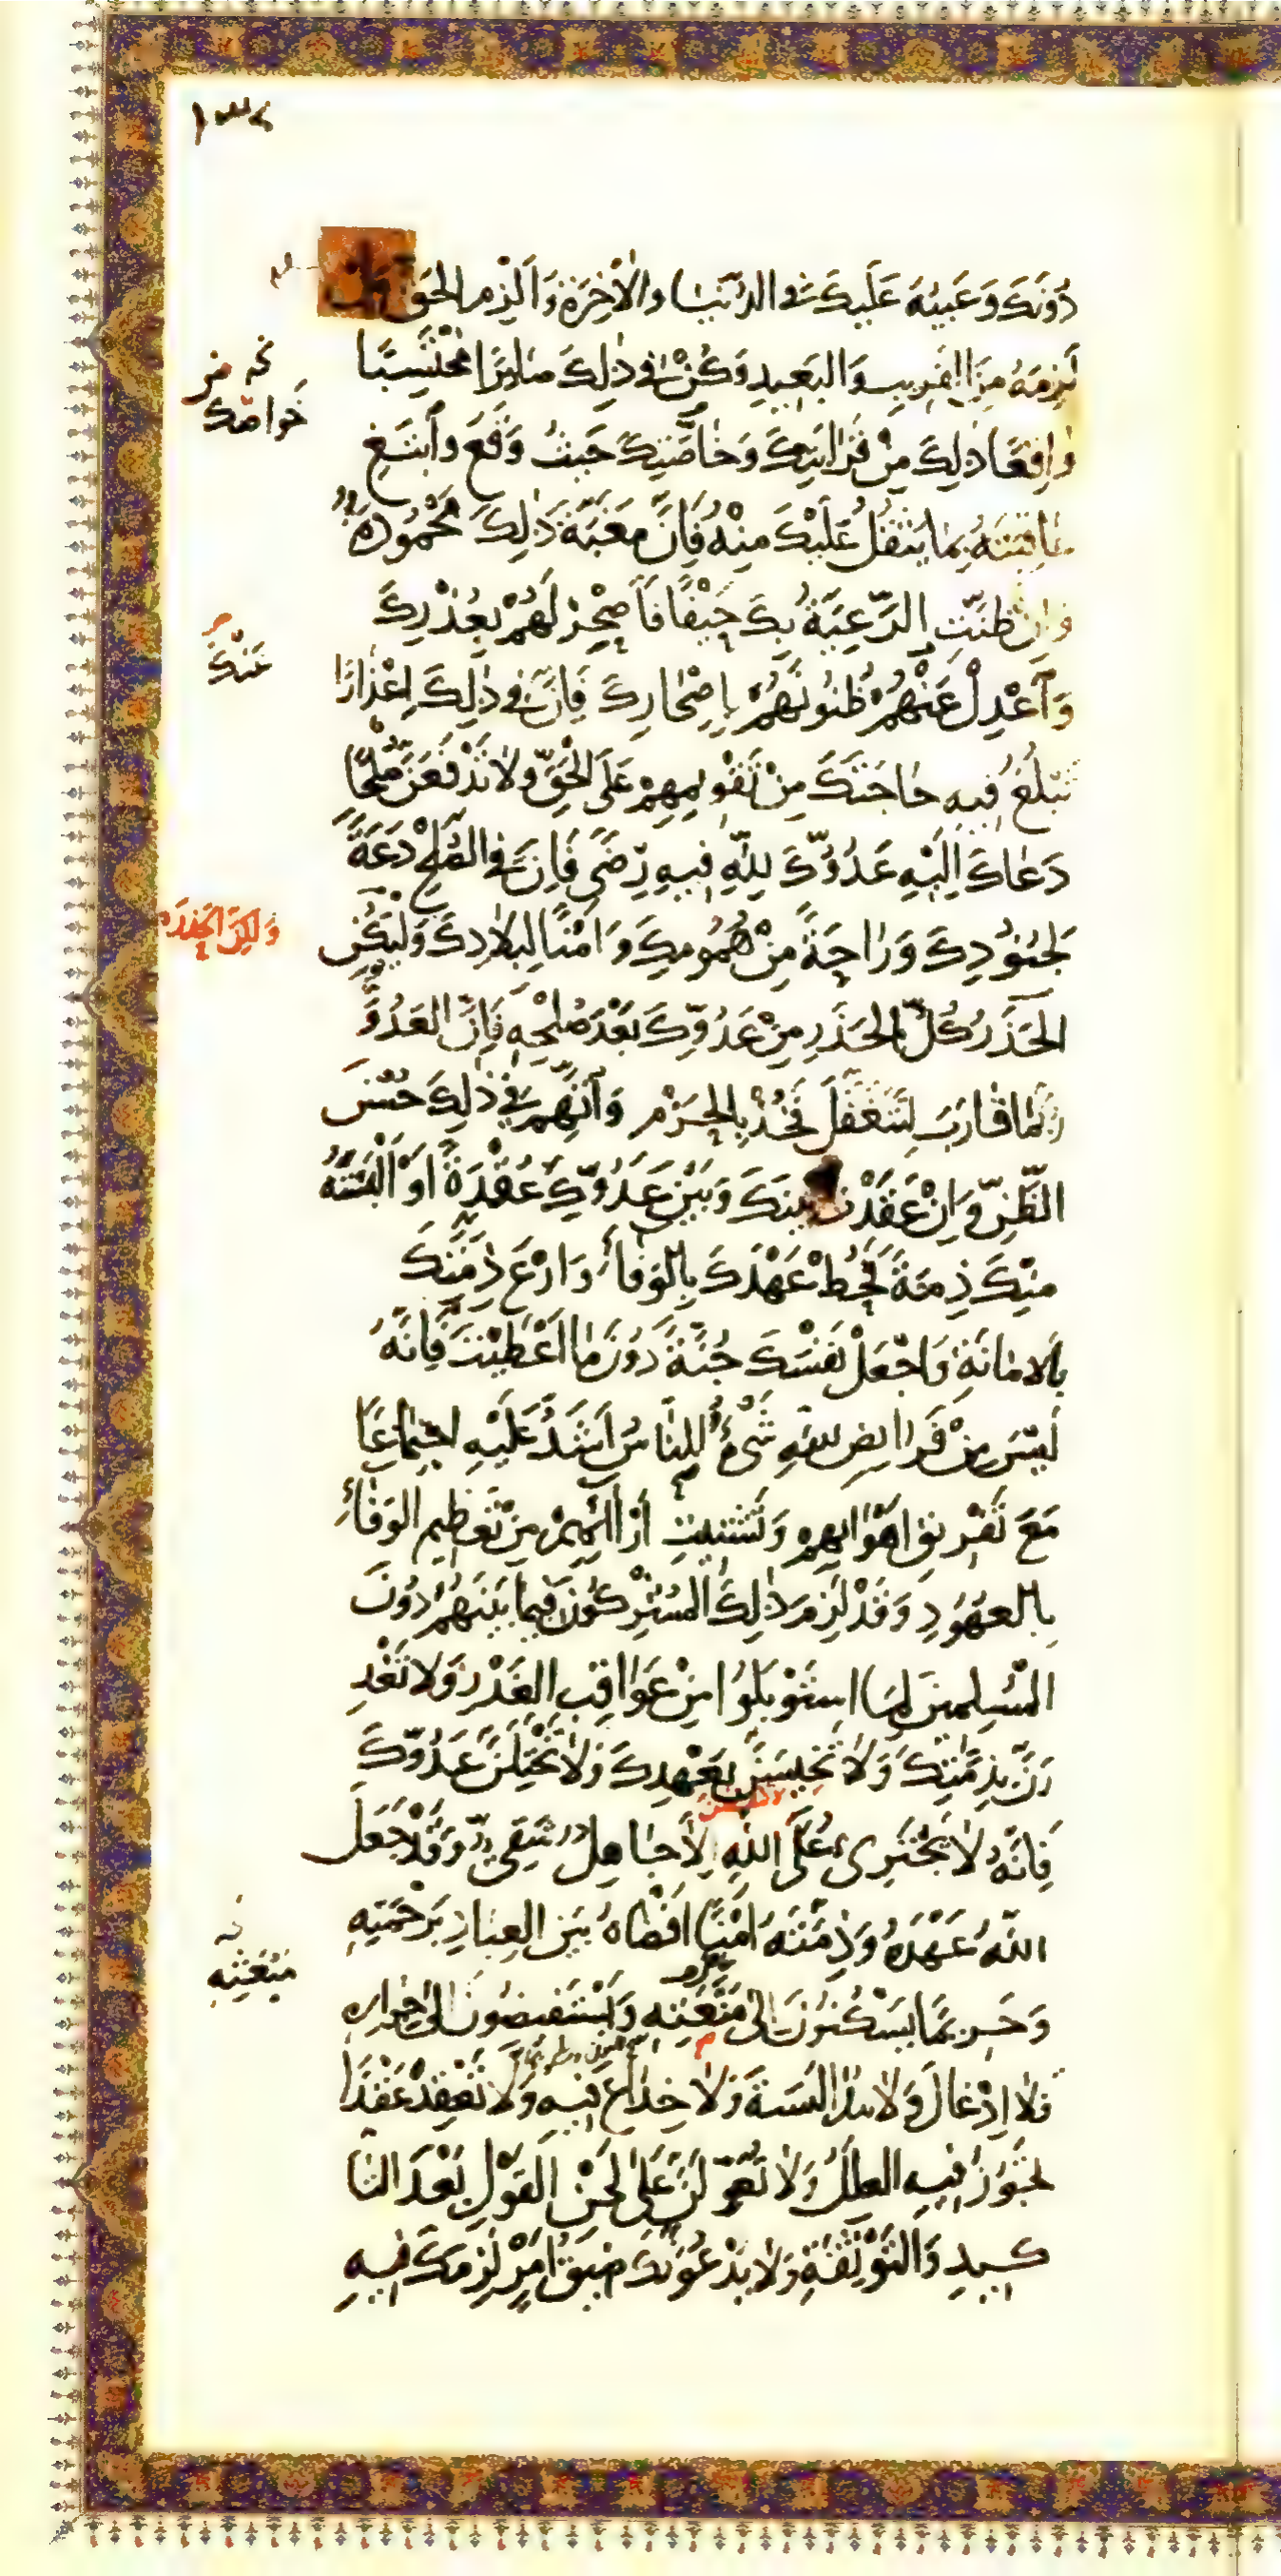 ١٣٢
دُونَكَ وَعَيبُهُ عَلَيكَ فى الدُّنيَا وَالاٰخِرَةِ وَاَلزِمِ الحَقَّ مَن
لَزِمَهُ مِنَ القَرِيبِ وَالبَعِيدِ وَكُنْ فى ذٰلِكَ صَابِرًا مُحْتَسِبًا
نخـ من
خَواصّكَ
وَاقِعًا ذٰلِكَ مِنْ قَرَابَتِكَ وَخَاصَّتِكَ حَيثُ وَقَعَ وَابتَغِ
عَاقِبَتَهُ بِمَا يَثقُلُ عَلَيْكَ مِنْهُ فَاِنَّ مَغَبَّةَ ذٰلِكَ مَحْمُودَةٌ
وَاِنْ ظَنَّتِ الرَّعِيَّةُ بِكَ حَيْفًا فَاَصْحِرْ لَهُمْ بِعُذْرِكَ
عَنْكَ
وَاَعْدِلْ عَنْهُمْ ظُنُونَهُمْ بِاِصْحَارِكَ فَاِنَّ فى ذٰلِكَ اِعْذَارًا
تَبلُغُ فِيهِ حَاجَتَكَ مِنْ تَقْوِيمِهِمْ عَلَى الْحَقِّ وَلا تَدْفَعَنَّ صُلْحًا
دَعَاكَ اِلَيْهِ عَدُوُّكَ لِلّٰهِ فِيهِ رِضًى فَاِنَّ فى الصُّلْحِ دَعَةً
وَلكِنَّ الحَذَرَ
لِجُنُودِكَ وَرَاحَةً مِنْ هُمُومِكَ وَاَمْنًا لِبِلادِكَ وَليَكُن
الحَذَرُ كُلُّ الحَذَرِ مِنْ عَدُوِّكَ بَعْدَ صُلْحِهِ فَاِنَّ العَدُوَّ
رُبَّمَا قَارَبَ لِيَتَغَفَّلَ فَخُذْ بِالحَزْمِ وَاتَّهِمْ فى ذٰلِكَ حُسْنَ
الظَّنِّ وَاِنْ عَقَدْتَ بَينَكَ وَبَيْنَ عَدُوِّكَ عُقْدَةً اَوْ اَلْبَسْتَهُ
مِنْكَ ذِمَّةً فَحُطْ عَهْدَكَ بِالوَفَاءِ وَارْعَ ذِمَّتَكَ
بِالامَانَةِ وَاجْعَلْ نَفْسَكَ جُنَّةً دُونَ مَا اَعْطَيْتَ فَاِنَّهُ
لَيْسَ مِنْ فَرَايضِ اللهِ شَىْءٌ للِنَّاسُ اَشَدُّ عَلَيْهِ اجتِمَاعًا
مَعَ تَفْرِيقِ اَهْوَايهِمْ وَتَشْتِيتِ ارَائِهِمْ مِنْ تَعظِيمِ الوَفَاءِ
بِالعُهُودِ وَقَدْ لَزِمَ ذٰلِكَ المُشْرِكُونَ فِيمَا بَيْنَهُمْ دُونَ
المُسْلِمِينَ لِمَا استَوْبَلُوا مِنْ عَوَاقِبِ الغَدْرِ وَلا تَغْدِ
رَنَّ بِذِمَّتِكَ وَلا تَخِيسَنَّ بِعَهْدِكَ وَلا تَخْتِلَنَّ عَدُوَّكَ
فَاِنَّهُ لا يَجْتَرِىءُ عَلَى اللهِ اِلا جَاهِلٌ شَقِىٌّ وَقَدْ جَعَلَ
اللهُ عَهْدَهُ وَذِمَّتَهُ اَمْنًا اَفضَاهُ بَيْنَ العِبَادِ بَرَحْمَتِهِ
مَنَعَتِهِ
وَحَرِيمًا يَسْكُنُونَ اِلى مَنَعَتِهِ وَيَسْتَفيضُونَ اِلى جِوَارِهِ
فَلا اِدْغَالَ وَلا مُدَالَسَةَ وَلا خِدَاعَ فِيهِ وَلا تَعْقِدْ عَقْدًا
تُجَوِّزُ فِيهِ العِلَلَ وَلا تُعَوِّلَنَّ عَلى لَحْنِ القَوْلِ بَعْدَ التَّا
كِيدِ وَالتَّوْثِقَةِ وَلا يَدْعُوَنَّكَ ضِيقُ اَمْرٍ لَزِمَكَ فِيهِ